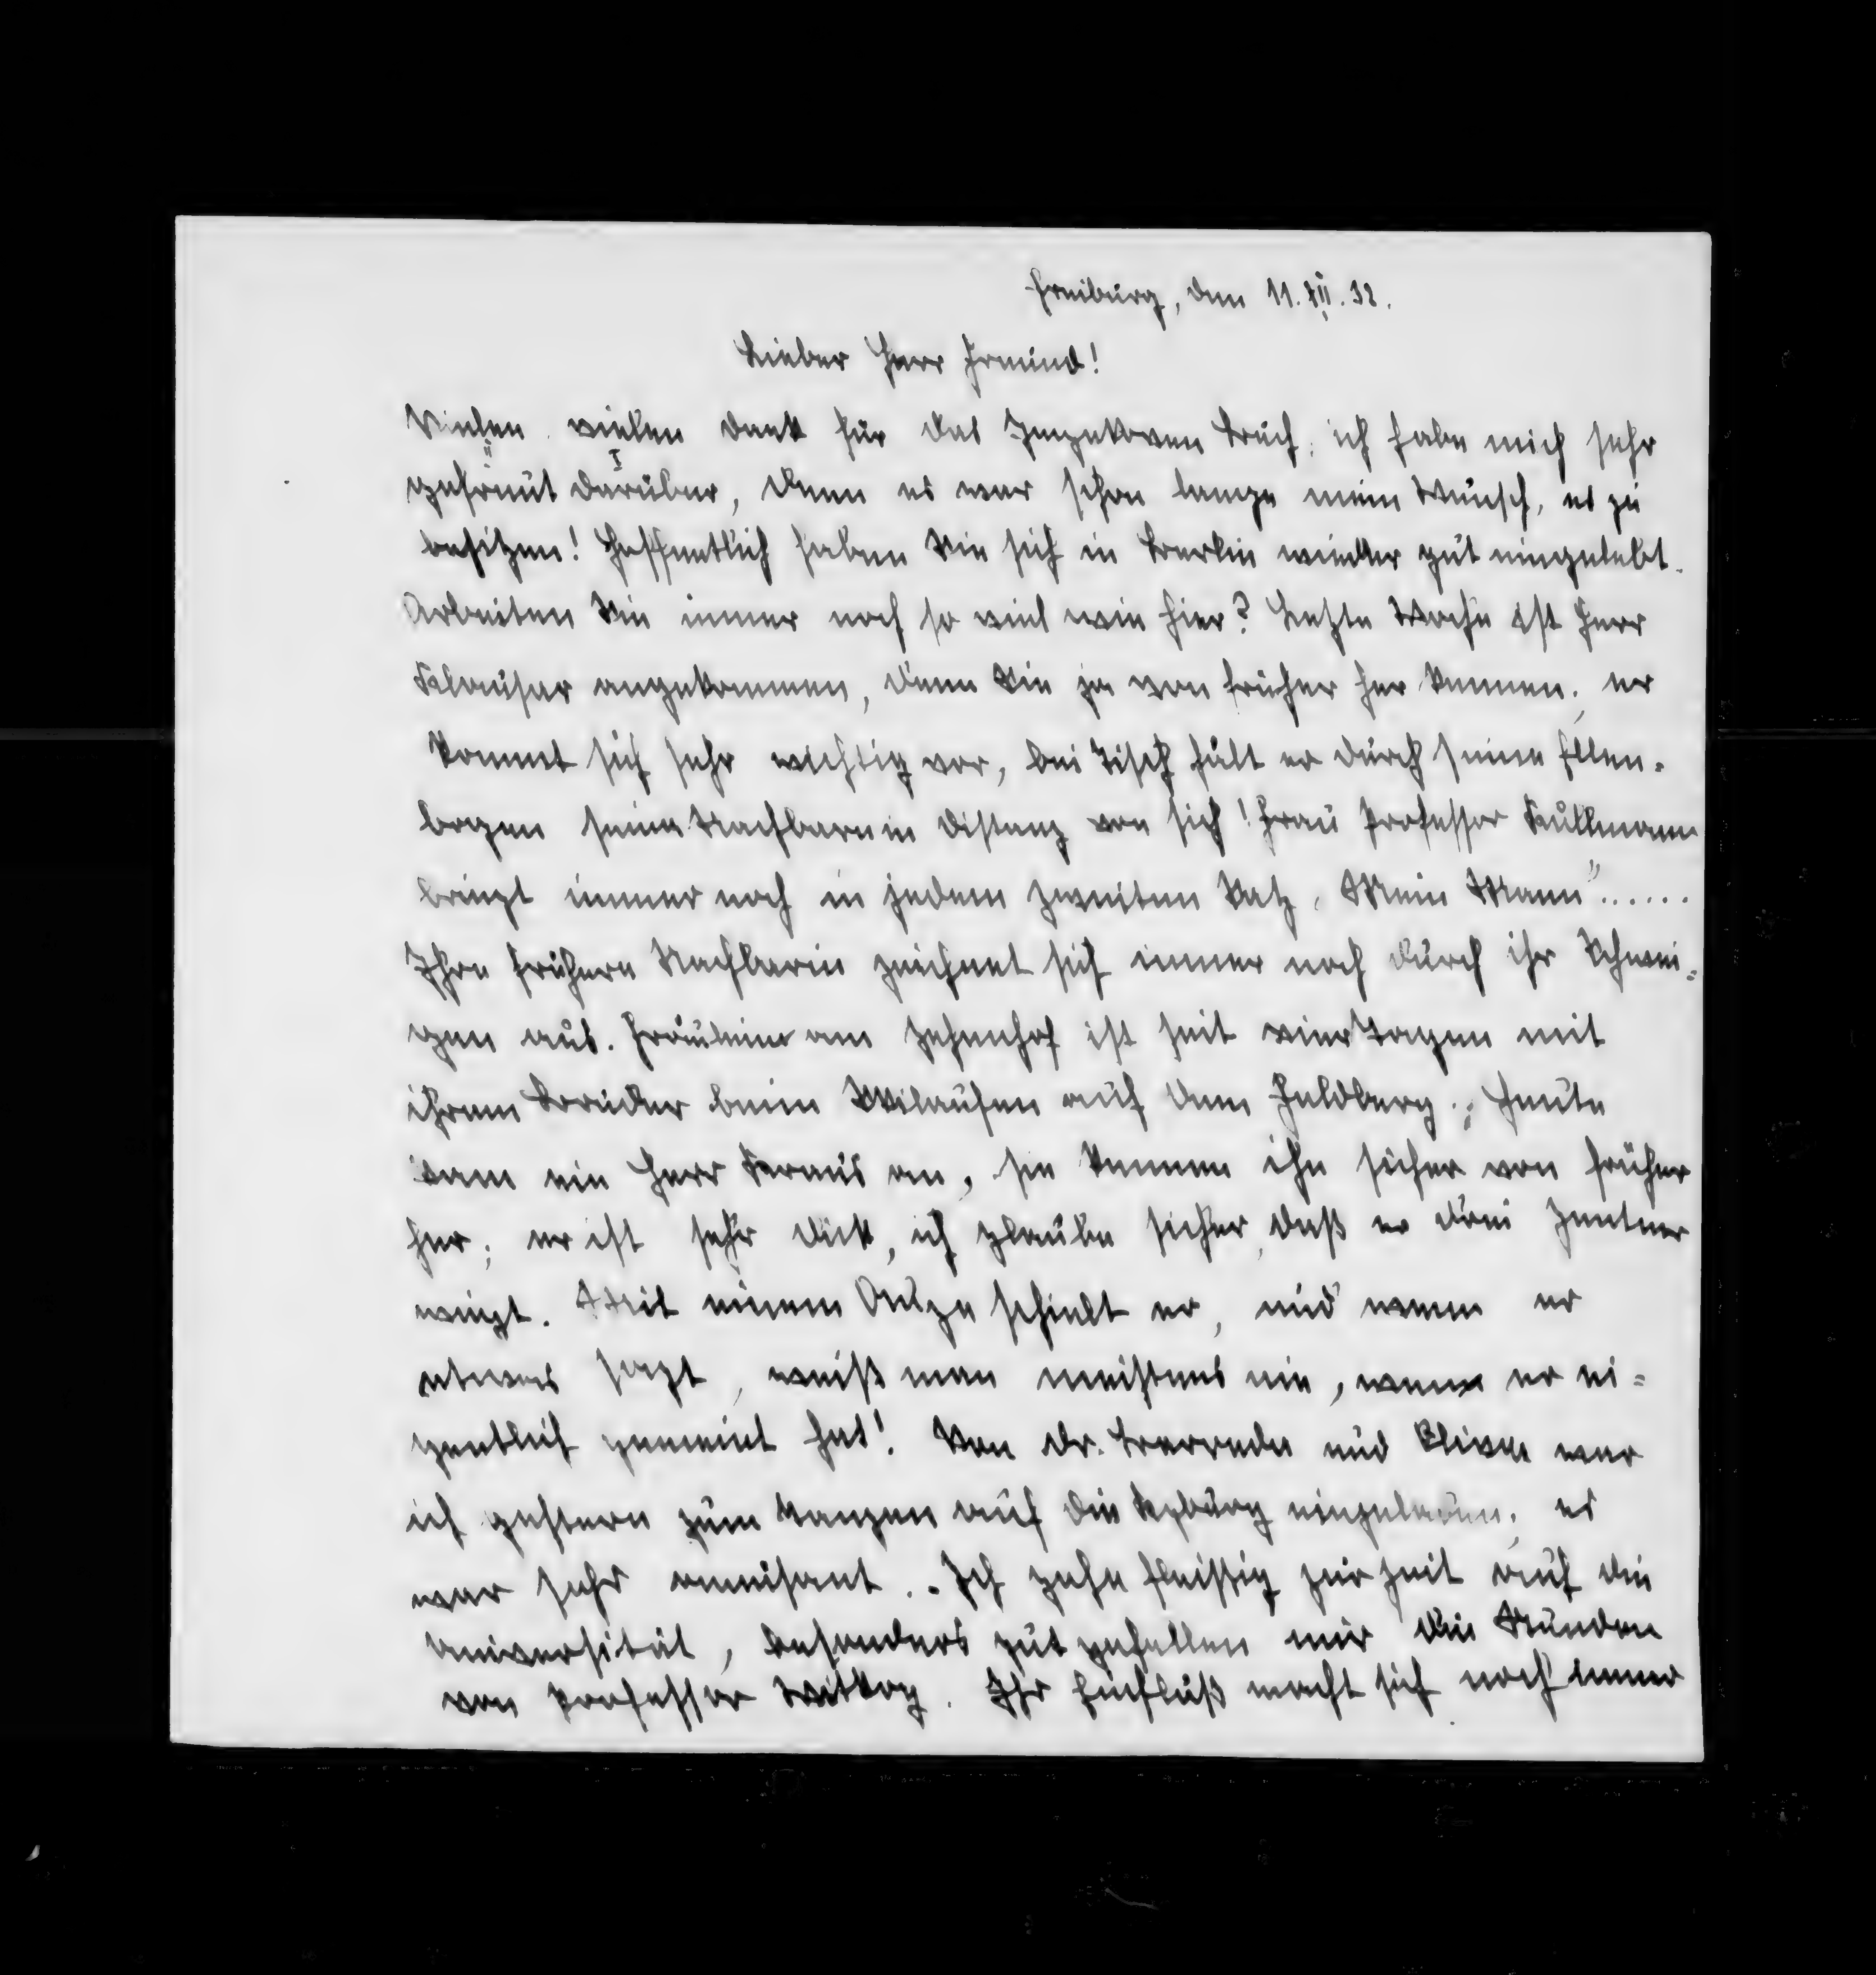 Freiburg, den 11. XII. 32.
Lieber Herr Freund!
Vielen vielen Dank für das Buch; ich habe mich sehr
gefreut darüber, denn es war schon lange mein Wunsch, es zu
besitzen! Hoffentlich haben Sie sich in Berlin wieder gut eingelebt.
Arbeiten Sie immer noch so viel wie hier? Letzte Woche ist Herr
Klauser angekommen, denn Sie ja von früher her kennen; er
kommt sich sehr wichtig vor, bei Tisch hält er durch seine Ellen-
bogen seine Nachbarn in Distanz von sich! Frau Professor Kullmann
bringt immer noch in jedem zweiten Satz „Mein Mann“......
Ihre frühere Nachbarin zeichnet sich immer noch durch ihr Schwei-
gen aus. Fräulein am Zehnhof ist seit vier Tagen mit
ihrem Bruder beim Skilaufen auf dem Feldberg; heute
kam ein Herr Kraus an, sie kennen ihn sicher von früher
her; er ist sehr dick, ich glaube sicher, daß er drei Zentner
wiegt. Mit einem Auge schielt er, und wenn er
etwas sagt, weiß man meistens nie, wenn er ei-
gentlich gemeint hat! Von Dr. und war
ich gestern zum Tanzen auf die Kyburg eingeladen; es
war sehr amüsant. Ich gehe fleißig zur Zeit auf die
Universität, besonders gut gefallen mir die Stunden
von Professor Witkop. Ihr Einfluß macht sich noch immer